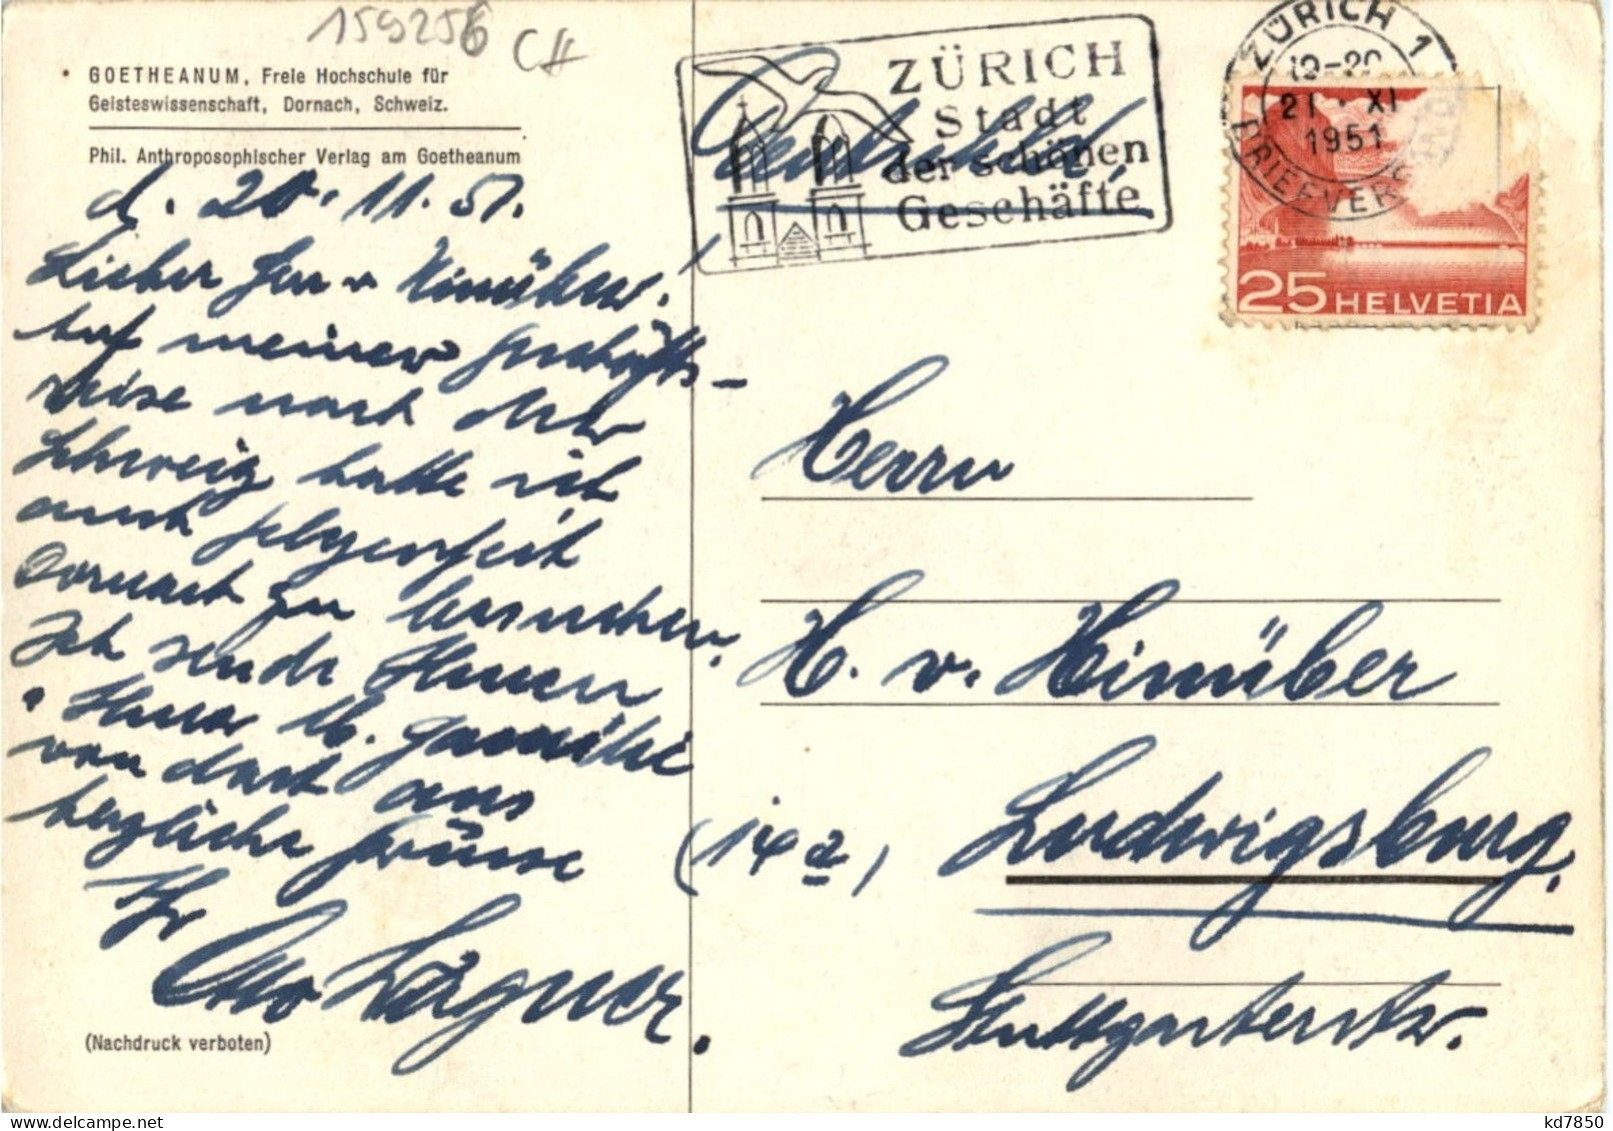 159256 CH
GOETHEANUM, Freie Hochschule für
Geisteswissenschaft, Dornach, Schweiz.
Phil. Anthroposophischer Verlag am Goetheanum
d. 20. 11. 51.
Lieber Herr v. Himüber!
Auf meiner Geschäfts-
reise nach der
Schweiz hatte ich
auch gelegenheit
Dornach zu besuchen.
Ich sende Ihnen
u. Ihrer lb. Familie
von dort aus
herzliche Grüsse
Ihr
Otto Wagner.
(Nachdruck verboten)
ZÜRICH
Stadt
der schönen
Geschäfte
ZÜRICH 1
21. XI
1951
BRIEFVERSAND
25 HELVETIA
Herrn
H. v. Himüber
(14a) Ludwigsburg,
Stuttgarterstr.
kd7850